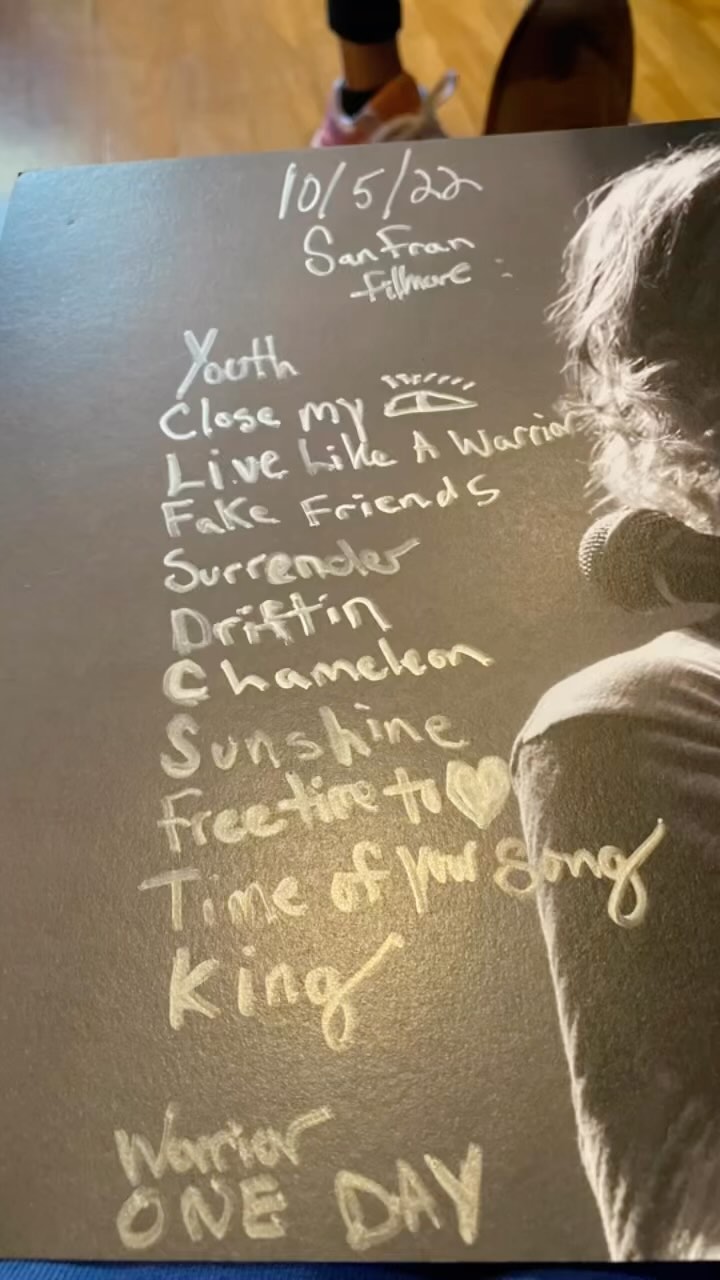 10/5/22
San Fran
Fillmore
Youth
Close my
Live Like A Warrior
Fake Friends
Surrender
Driftin
Chameleon
Sunshine
Free to
Time of your Song
King
Warrior
ONE DAY